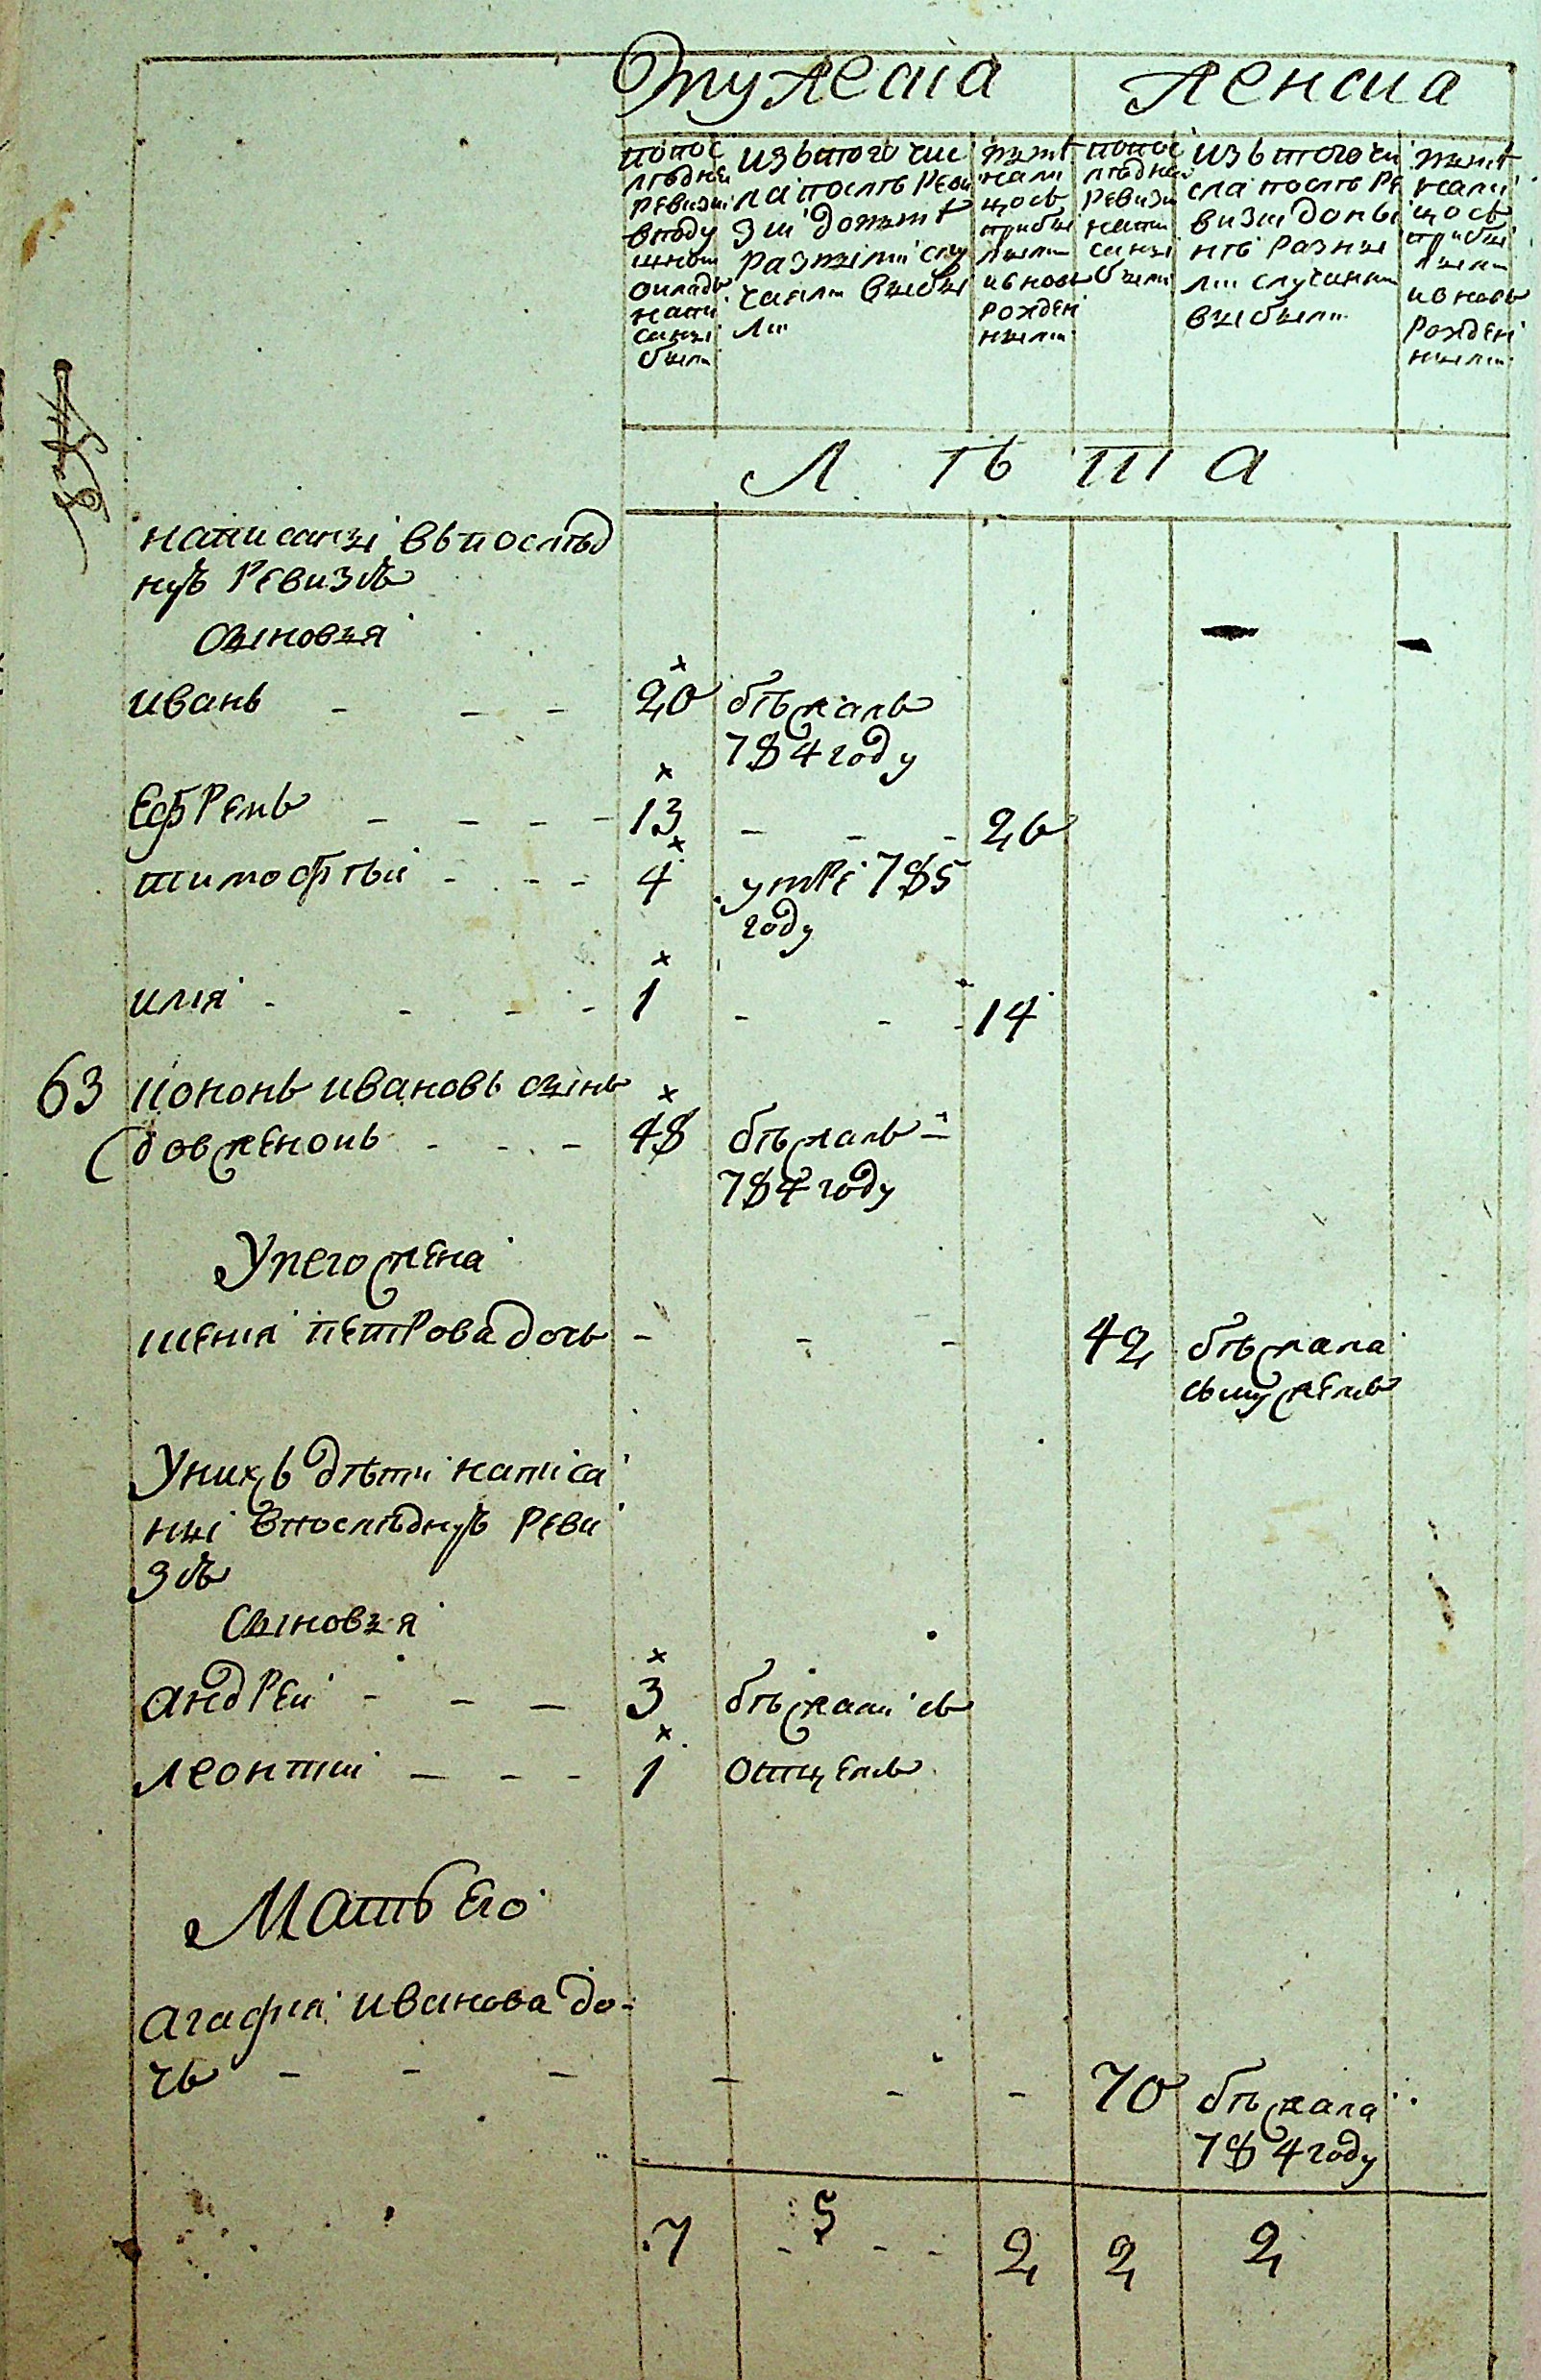 Мужеска женска
попос
лѣдней
Ревизиі
вподу
шном
окладѣ
напи
санні
были
изътого чис
ла послѣ Реви
зиі донынѣ
Разными слу
чаями выбы
ли
нынѣ
нали
цосъ
прибы
лыми
ивновь
Рожден
ными
попос
лѣдней
Ревизи
напи
санні
были
изътого чи
сла послѣ Ре
визиі доны
нѣ Разны
ми случаями
выбыли
нынѣ
нали
цосъ
прибы
лыми
ивновь
Рожден
ными
Л ѣ т а
написанні въпослѣд
ную Ревизію
сыновья
иванъ - - - 20 бѣжалъ
784 году
ЕфРемъ - - - - 13 - - - 26
тимофѣй - - - 4 умре 785
году
илія - - - - 1 - - - 14
63 кононъ ивановъ сынъ
довженокъ - - - 48 бѣжалъ
784 году
Унего жена
ксенія петРова дочь - - - 42 бѣжала
сьмужемъ
Унихъ дѣти написа
нні впослѣдную Реви
зію
Сыновья
андРей - - - 3 бѣжали съ
леонтий - - - 1 отцемъ
Мать Его
агафия иванова до-
чь - - - - - - 70 бѣжала
784 году
7 - 5 - - 2 2 2